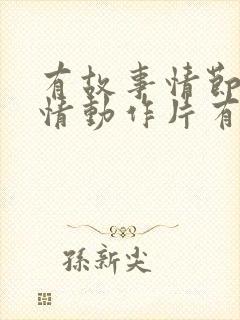 有故事情節
情動作片有
孫新尖